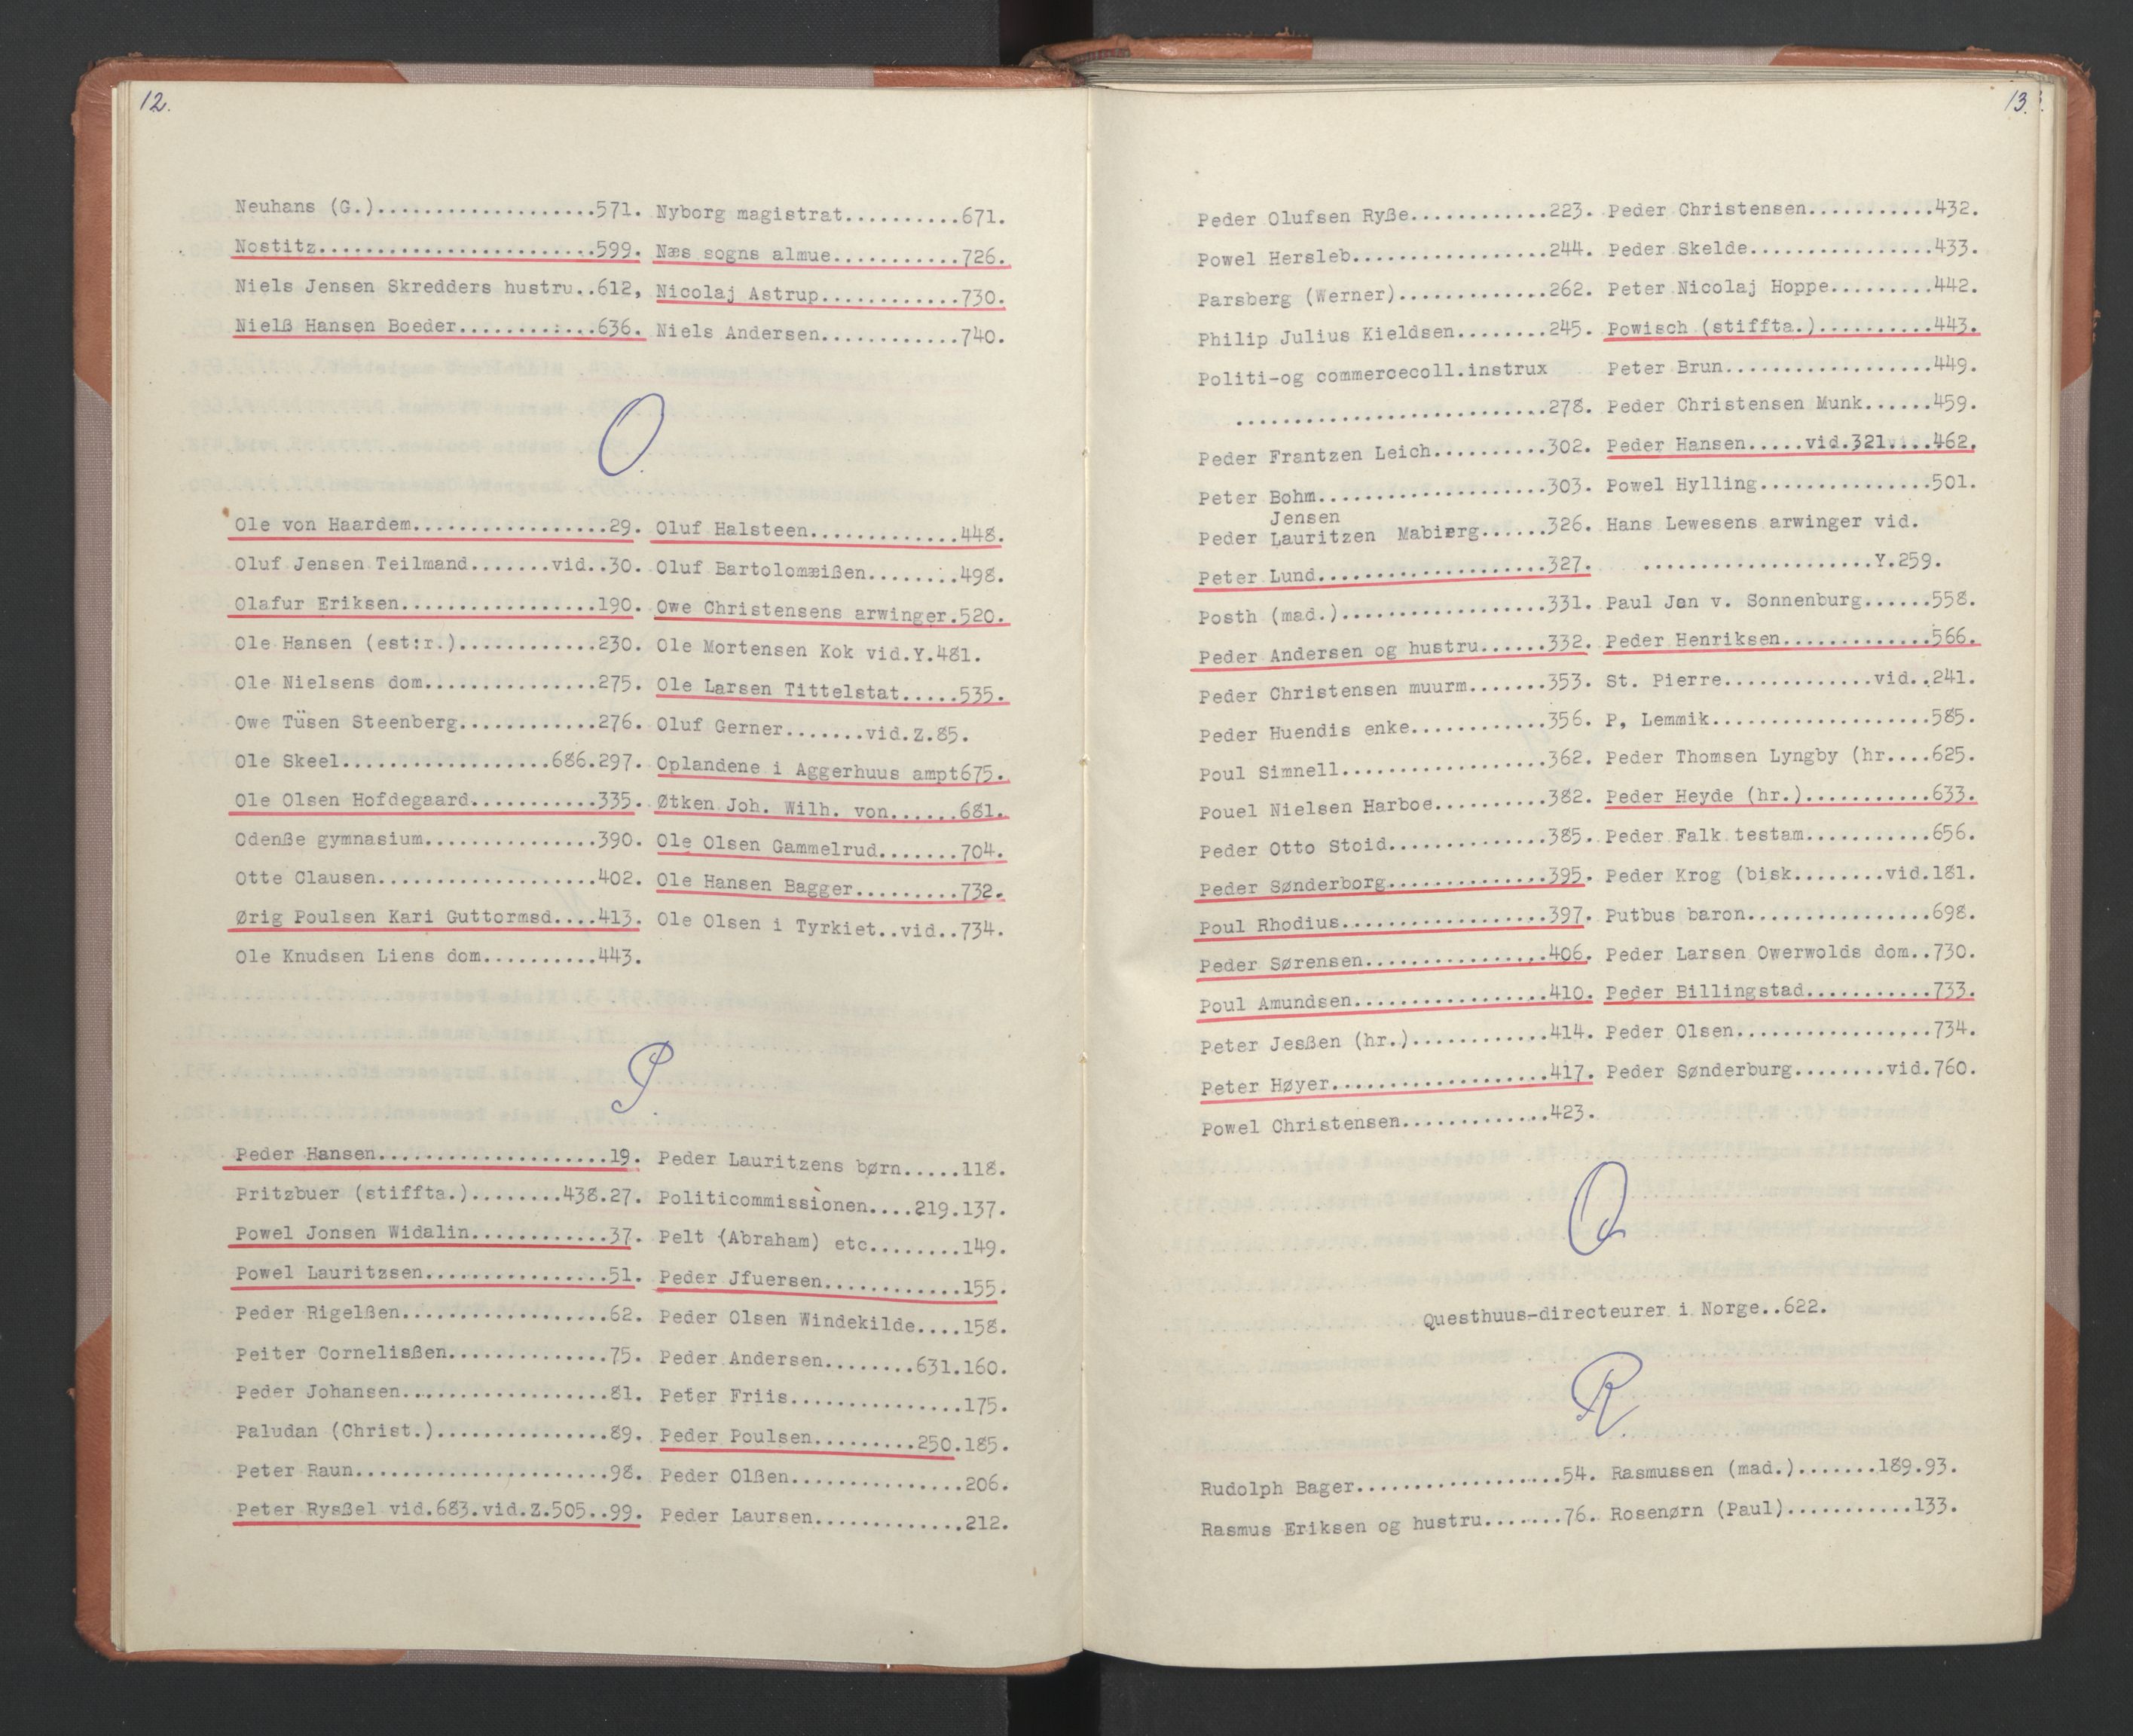 12.
Neuhans (G.)...................571.
Nostitz........................599.
Niels Jensen Skredders hustru..612,
Nielß Hansen Boeder............636.
Nyborg magistrat..........671.
Næs sogns almue...........726.
Nicolaj Astrup............730.
Niels Andersen............740.
O.
Ole von Haardem.................29.
Oluf Jensen Teilmand.......vid..30.
Olafur Eriksen.................190.
Ole Hansen (est:r.)............230.
Ole Nielsens dom...............275.
Owe Tüsen Steenberg............276.
Ole Skeel..................686.297.
Ole Olsen Hofdegaard...........335.
Odenße gymnasium...............390.
Otte Clausen...................402.
Ørig Poulsen Kari Guttormsd....413.
Ole Knudsen Liens dom..........443.
Oluf Halsteen.............448.
Oluf Bartolomæißen........498.
Owe Christensens arwinger.520.
Ole Mortensen Kok vid.Y.481.
Ole Larsen Tittelstat.....535.
Oluf Gerner.......vid.Z.85.
Oplandene i Aggerhuus ampt675.
Øtken Joh. Wilh. von......681.
Ole Olsen Gammelrud.......704.
Ole Hansen Bagger.........732.
Ole Olsen i Tyrkiet..vid..734.
P.
Peder Hansen....................19.
Pritzbuer (stiffta.)........438.27.
Powel Jonsen Widalin............37.
Powel Lauritzsen................51.
Peder Rigelßen..................62.
Peiter Cornelisßen..............75.
Peder Johansen..................81.
Paludan (Christ.)...............89.
Peter Raun......................98.
Peter Rysßel vid.683.vid.Z.505..99.
Peder Lauritzens børn.....118.
Politicommissionen....219.137.
Pelt (Abraham) etc........149.
Peder Jfuersen............155.
Peder Olsen Windekilde....158.
Peder Andersen........631.160.
Peter Friis...............175.
Peder Poulsen.........250.185.
Peder Olßen...............206.
Peder Laursen.............212.
13.
Peder Olufsen Ryße............223.
Powel Hersleb.................244.
Parsberg (Werner).............262.
Philip Julius Kieldsen........245.
Politi-og commercecoll.instrux
............................278.
Peder Frantzen Leich..........302.
Peter Bohm....................303.
Jensen
Peder Lauritzen Mabierg......326.
Peter Lund....................327.
Posth (mad.)..................331.
Peder Andersen og hustru......332.
Peder Christensen muurm.......353.
Peder Huendis enke............356.
Poul Simnell..................362.
Pouel Nielsen Harboe..........382.
Peder Otto Stoid..............385.
Peder Sønderborg..............395.
Poul Rhodius..................397.
Peder Sørensen................406.
Poul Amundsen.................410.
Peter Jesßen (hr.)............414.
Peter Høyer...................417.
Powel Christensen.............423.
Peder Christensen...........432.
Peder Skelde................433.
Peter Nicolaj Hoppe.........442.
Powisch (stiffta.)..........443.
Peter Brun..................449.
Peder Christensen Munk......459.
Peder Hansen.....vid.321....462.
Powel Hylling...............501.
Hans Lewesens arwinger vid.
....................Y.259.
Paul Jan v. Sonnenburg......558.
Peder Henriksen.............566.
St. Pierre.............vid..241.
P, Lemmik...................585.
Peder Thomsen Lyngby (hr....625.
Peder Heyde (hr.)...........633.
Peder Falk testam...........656.
Peder Krog (bisk........vid.181.
Putbus baron................698.
Peder Larsen Owerwolds dom..730.
Peder Billingstad...........733.
Peder Olsen.................734.
Peder Sønderburg........vid.760.
Q
Questhuus-directeurer i Norge..622.
R.
Rudolph Bager..................54.
Rasmus Eriksen og hustru.......76.
Rasmussen (mad.).......189.93.
Rosenørn (Paul)...........133.